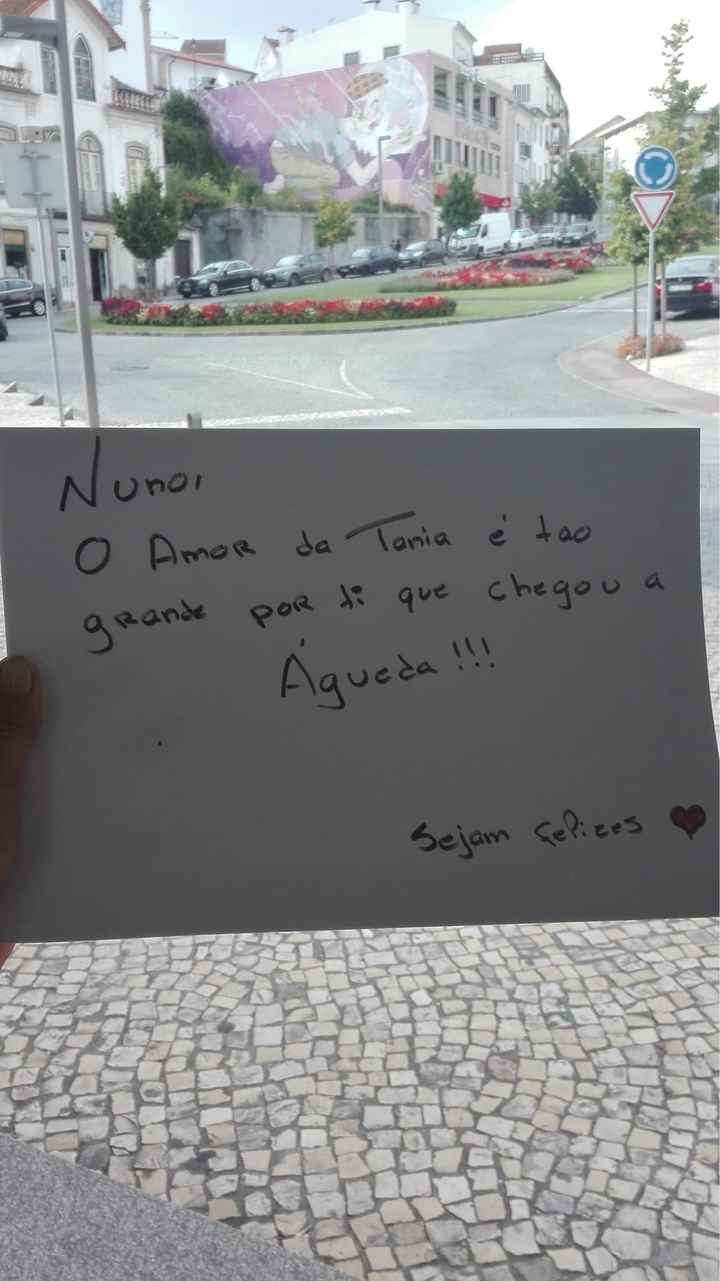 Nuno,
O Amor da Tania é tao
grande por ti que chegou a
Águeda!!!
Sejam felizes